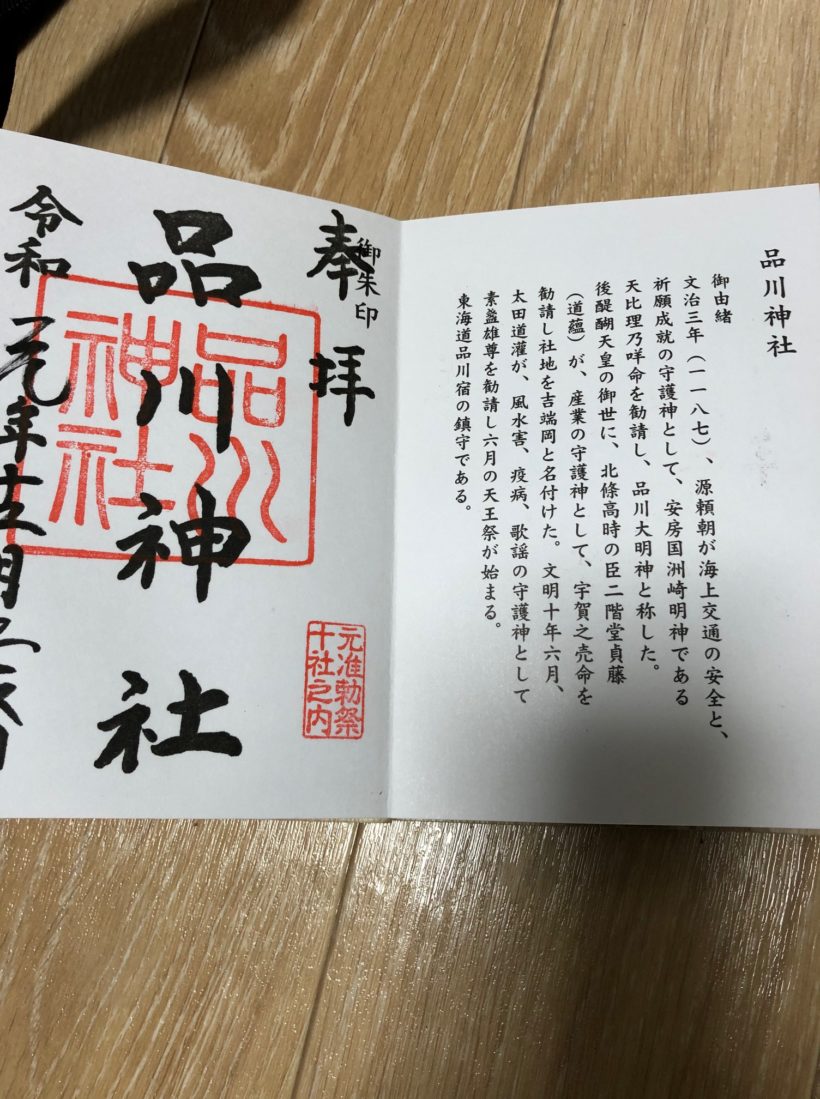 品川神社
御由緒
文治三年（一一八七）、源頼朝が海上交通の安全と、
祈願成就の守護神として、安房国洲崎明神である
天比理乃咩命を勧請し、品川大明神と称した。
後醍醐天皇の御世に、北條高時の臣二階堂貞藤
（道蘊）が、産業の守護神として、宇賀之売命を
勧請し社地を吉端岡と名付けた。文明十年六月、
太田道灌が、風水害、疫病、歌謡の守護神として
素盞雄尊を勧請し六月の天王祭が始まる。
東海道品川宿の鎮守である。
御朱印
奉拝
元准勅祭
十社之内
品川神社
品川
神社
令和元年十二月